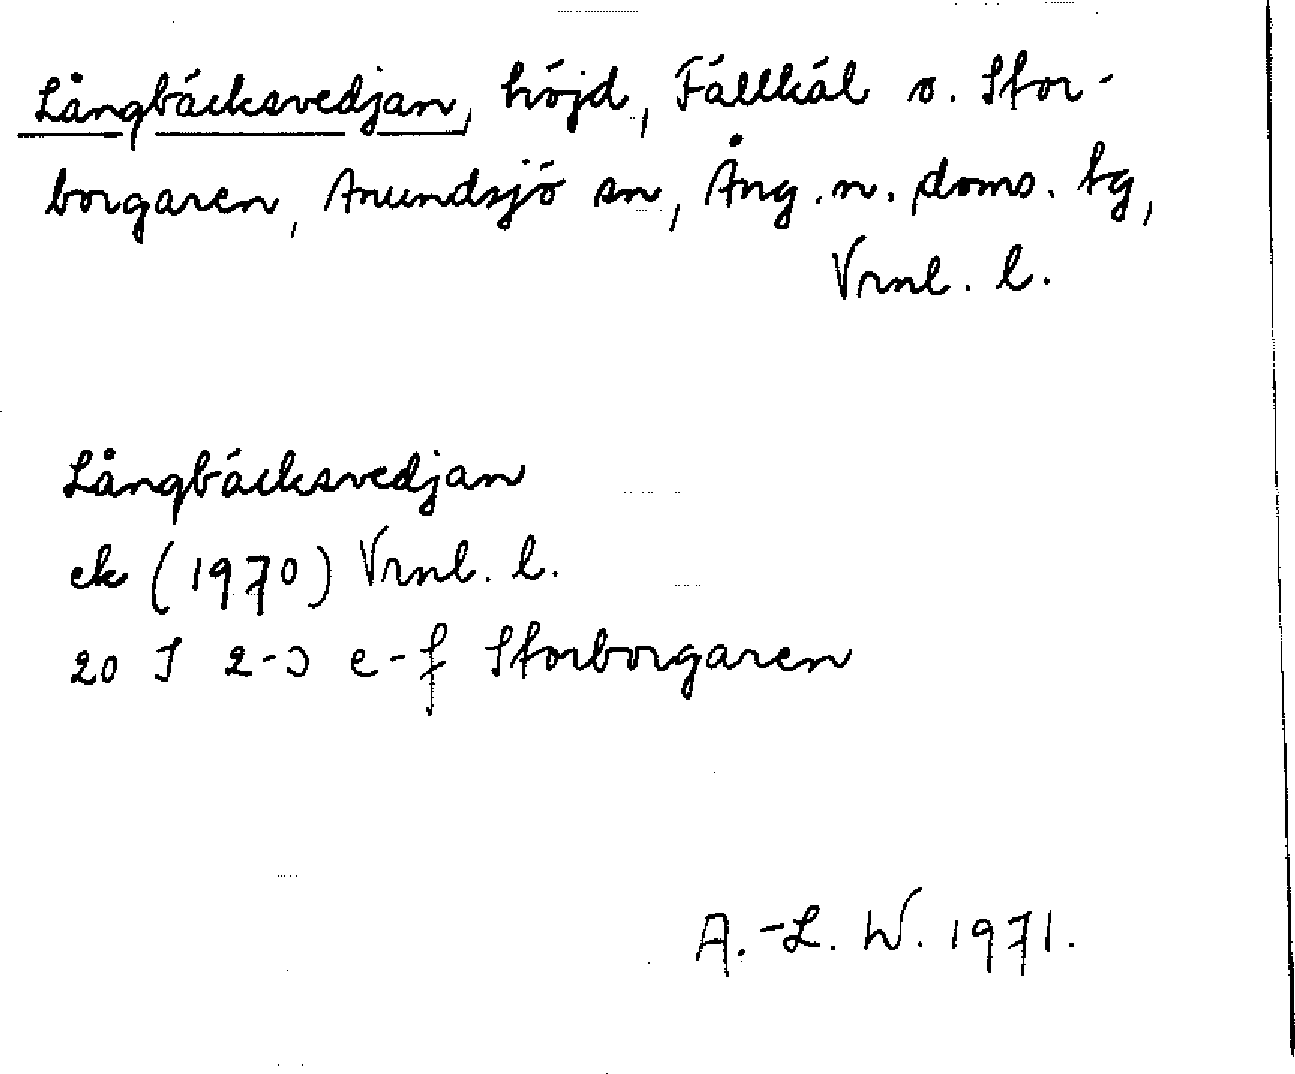 Långbäcksvedjan, höjd, Fällhål o. Stor-
borgaren, Anundsjö sn, Ång. n. doms. tg,
Vrnl. l.
Långbäcksvedjan
ek (1970) Vrnl. l.
20 J 2-3 e-f Storborgaren
A.-L. W. 1971.